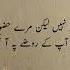 نہیں لیکن مرے حضور
آپ کے روضے پہ آ